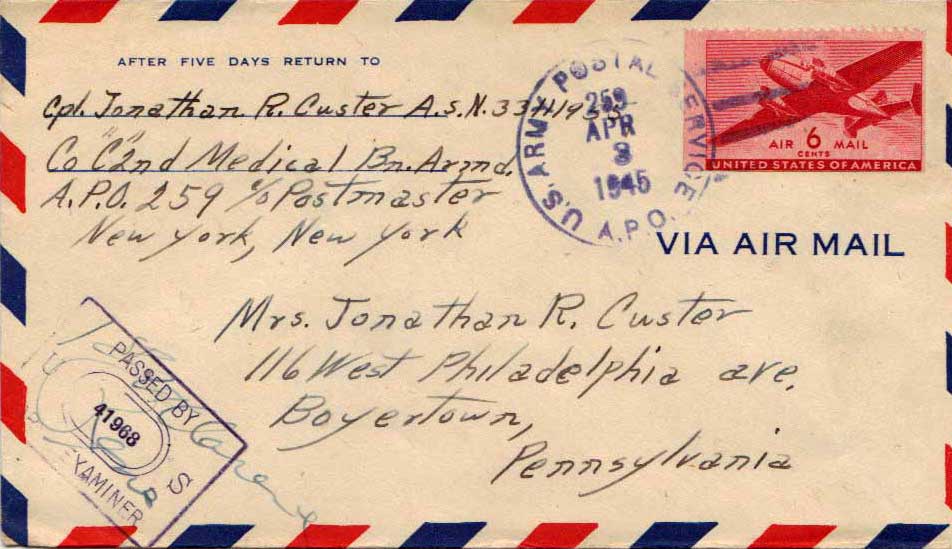 AFTER FIVE DAYS RETURN TO
Cpl. Jonathan R. Custer A.S.N.
Co "C" 2nd Medical Bn. Armd.
A.P.O. 259 c/o Postmaster
New York, New York
U.S. ARMY POSTAL SERVICE
259
APR
3
1945
A.P.O.
AIR 6 MAIL
CENTS
UNITED STATES OF AMERICA
VIA AIR MAIL
Mrs. Jonathan R. Custer
116 West Philadelphia ave.
Boyertown,
Pennsylvania
PASSED BY
U S
41968
EXAMINER